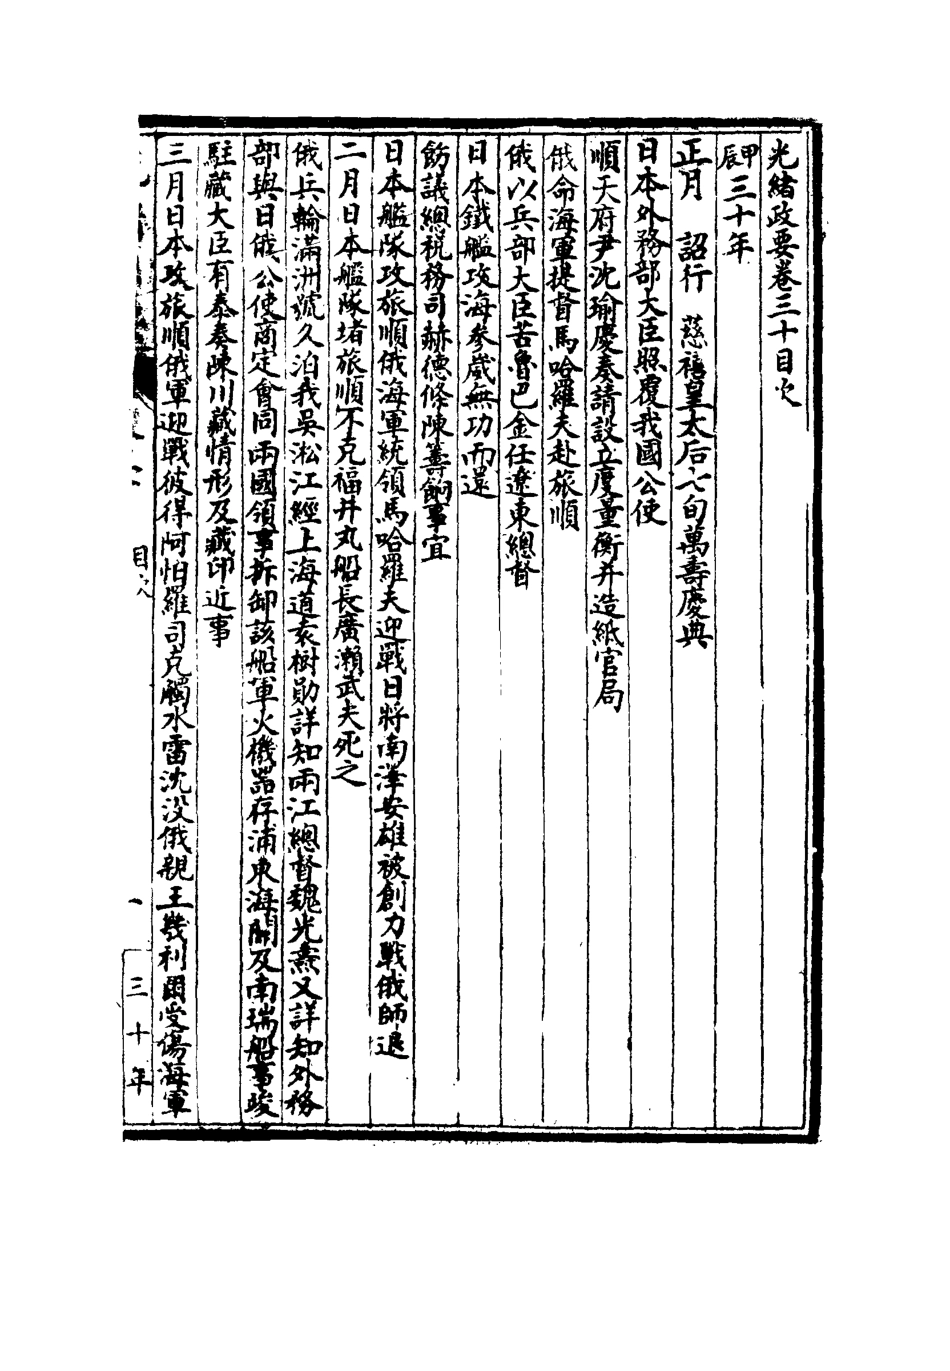 光緒政要卷三十目次
甲辰三十年
正月　詔行　慈禧皇太后七旬萬壽慶典
日本外務部大臣照覆我國公使
順天府尹沈瑜慶奏請設立度量衡并造紙官局
俄命海軍提督馬哈羅夫赴旅順
俄以兵部大臣苦魯巴金任遼東總督
日本鐵艦攻海參崴無功而還
飭議總稅務司赫德條陳籌餉事宜
日本艦隊攻旅順俄海軍統領馬哈羅夫迎戰日將南澤安雄被創力戰俄師退
二月日本艦隊堵旅順不克福井丸船長廣瀨武夫死之
俄兵輪滿洲號久泊我吳淞江經上海道袁樹勛詳知兩江總督魏光燾又詳知外務
部與日俄公使商定會同兩國領事拆卸該船軍火機器存浦東海關及南瑞船事竣
駐藏大臣有泰奏陳川藏情形及藏印近事
三月日本攻旅順俄軍迎戰彼得阿怕羅司克觸水雷沈沒俄親王幾利爾受傷海軍
目次
一
三十年